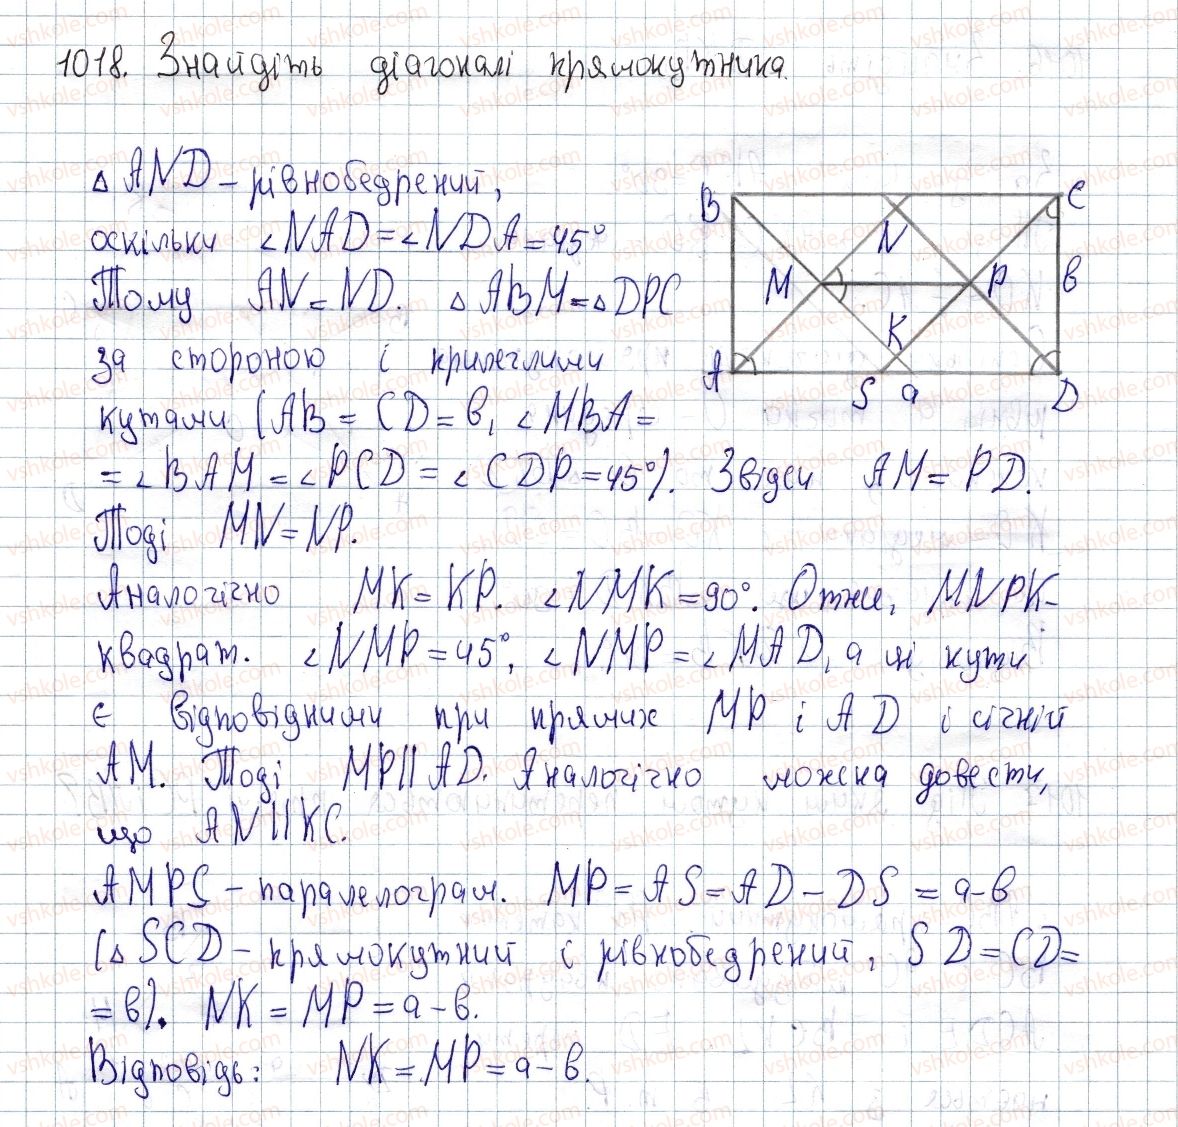 1018. Знайдіть діагоналі прямокутника.
△ AND – рівнобедрений,
оскільки ∠NAD = ∠NDA = 45°
Тому AN = ND. △ ABM = △ DPC
за стороною і прилеглими
кутами (AB = CD = в, ∠MBA =
= ∠BAM = ∠PCD = ∠CDP = 45°). Звідси AM = PD.
Тоді MN = NP.
Аналогічно MK = KP. ∠NMK = 90°. Отже, MNPK –
квадрат. ∠NMP = 45°, ∠NMP = ∠MAD, а ці кути
є відповідними при прямих MP і AD і січній
AM. Тоді MP || AD. Аналогічно можна довести,
що AN || KC.
AMPS – паралелограм. MP = AS = AD – DS = a – в
(△ SCD – прямокутний і рівнобедрений, SD = CD =
= в). NK = MP = a – в.
Відповідь: NK = MP = a – в.
B
C
N
M
P
в
K
A
S
a
D